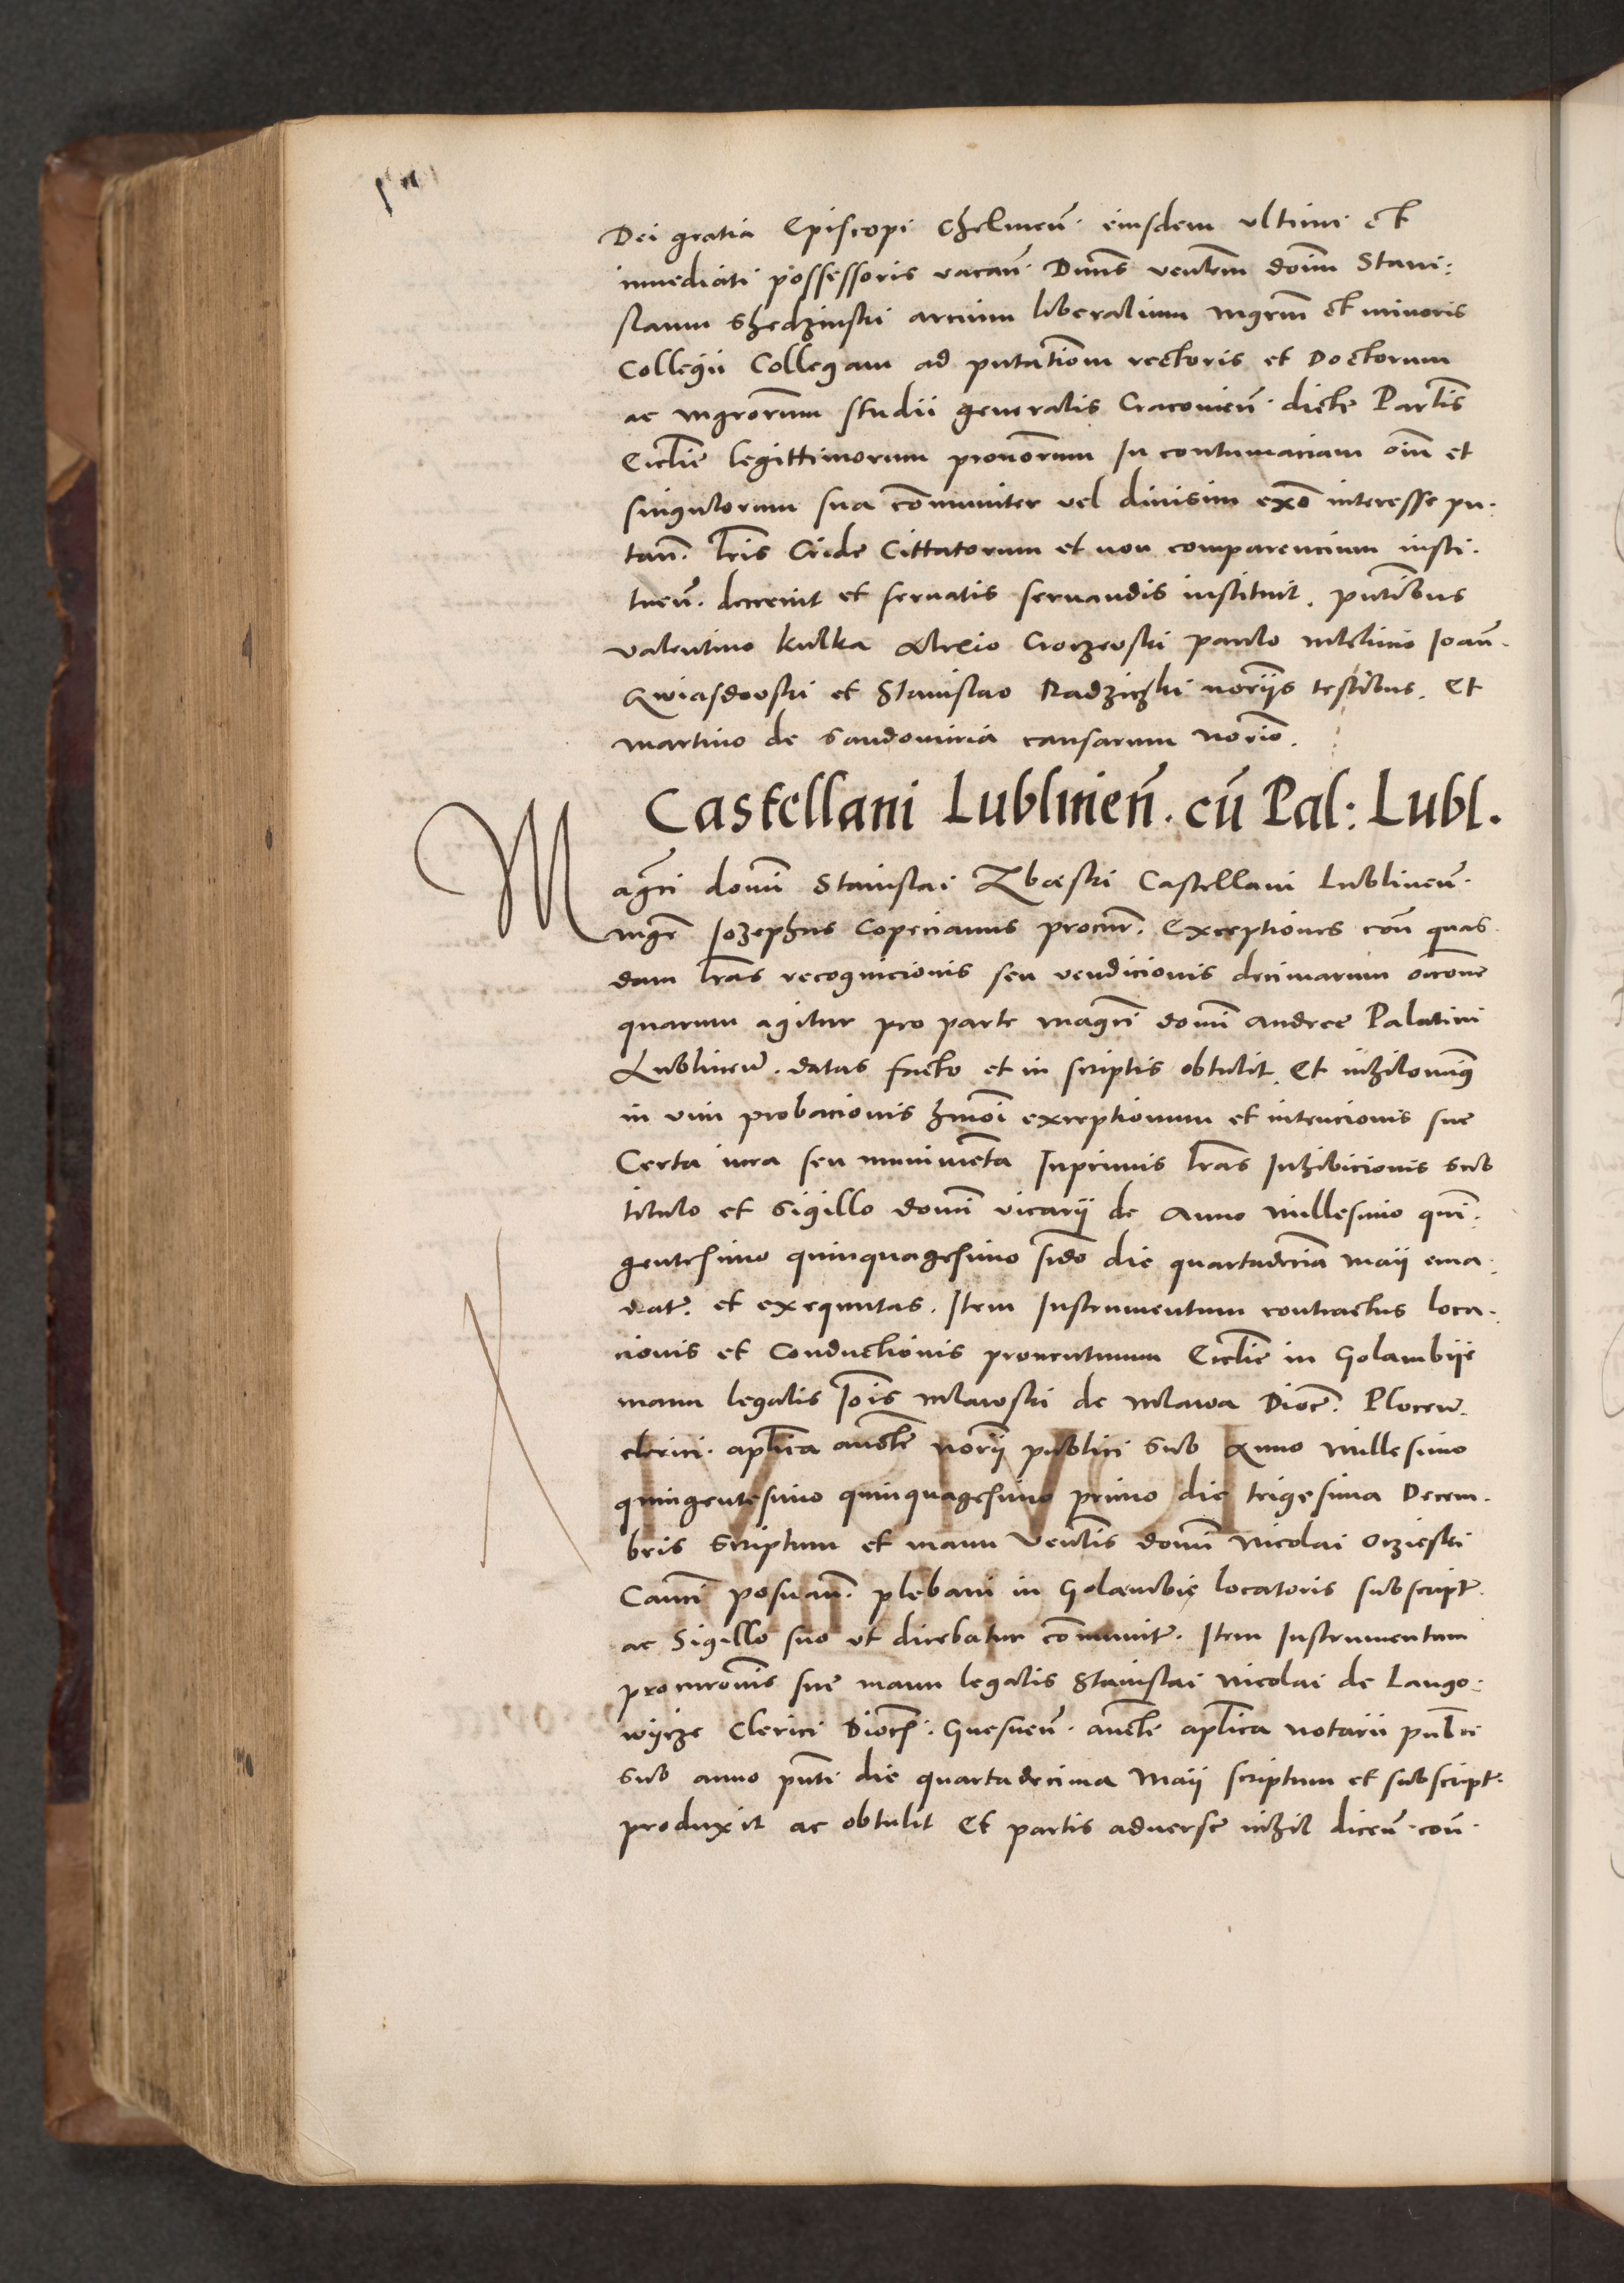 Dei gratia Episcopi Chelmen̄. eiusdem ultimi et
immediati possessoris vacan̄. Dūns ven̄lem doīm Stani:
slaum arcium liberalium mgr̄m et minoris
Collegii Collegam ad pn̄tatiōm rectoris et Doctorum
ac mgrōrum studii generalis Cracovien̄. dicte Par̄lis
Ecc̄lie legittimorum pronōrum In contumaciam oīm et
singulorum sua cōmuniter vel divisim interesse pu.
tan̄. Lr̄is Cride Cittatorum et non comparencium insti.
tuen̄. decrevit et servatis servandis instituit. pn̄tibus
valentino kulka Alexio paulo Ioan̄.
Gwiasdowski et Stanislao norījs testibus. Et
martino de Sandomiria causarum norīo.
Castellani Lublinen̄. cū Pal: Lubl.
Magc̄i domī Stanislai Castellani Lublinen̄.
mgr̄ Iozephus Copecianus procur̄. Exceptiones con̄ quas
dam lr̄as recognicionis seu vendicionis decimarum occ̄one
quarum agitur pro parte magc̄i domī Andree Palatini
Lublinen̄. datas facto et in scriptis obtulit. Et nihilomin9
in vim probacionis hmōi exceptionum et intencionis sue
Certa iura seu munimēta Inprimis lr̄as Inhibicionis sub
titulo et sigillo domī vicarij de Anno millesimo quin̄.
gentesimo quinquagesimo sc̄do die quartadecīa maij ema.
nat̄. et exequutas. Item Instrumentum contractus loca.
cionis et Conductionis proventuum Ecc̄lie in Golambije
manu legalis Ioīs mlawski de mlawa Dioc̄. Plocen̄.
clerici. apl̄ica auct̄e norīj publici sub Anno millesimo
quingentesimo quinquagesimo primo die trigesima Decem.
bris Scriptum et manu Ven̄lis domī Nicolai
Can̄ci posnan̄. plebani in Golambie locatoris subscript̄.
ac Sigillo suo ut dicebatur cōmunit̄. Item Instrumentum
procurōnis sue manu legalis Stanislai Nicolai de Lango:
wycze Clerici Dioc̄. Gnesnen̄. auct̄e apl̄ica notarii pub̄ci
sub anno pn̄ti die quartadecima Maij scriptum et subscript̄.
produxit ac obtulit Et partis adverse nihil dicen̄. con̄.